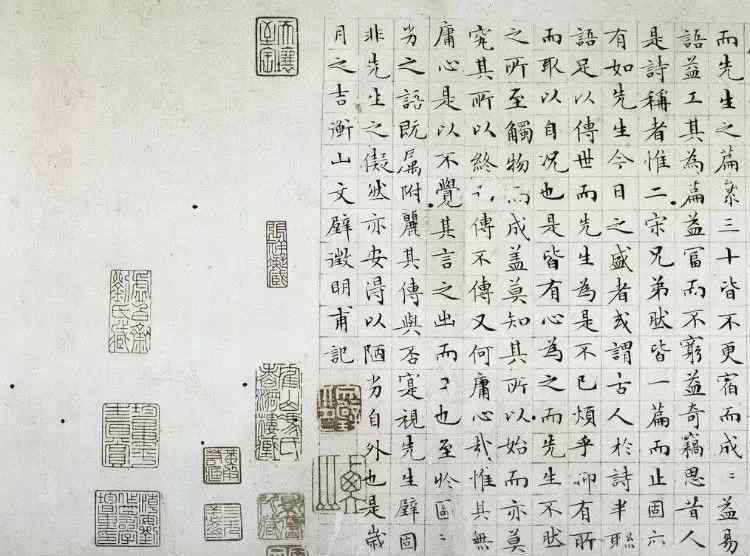 而先生之篇累三十皆不更宿而成〻益易
語益工其為篇益富而不窮益奇竊思昔人
是詩稱者惟二宋兄弟然皆一篇而止固
有如先生今日之盛者或謂古人於詩半聯
語足以傳世而先生為是不已煩乎抑有所
而取以自况也是皆有心為之而先生不然
之所至觸物而成蓋莫知其所以始而亦莫
究其所以終傳不傳又何庸心哉惟其無
庸心是以不覺其言之出而工也至於區〻
劣之語既屬附麗其傳與否寔視先生壁固
非先生之儗然亦安得以陋劣自外也是歲
月之吉衡山文壁徵明甫記